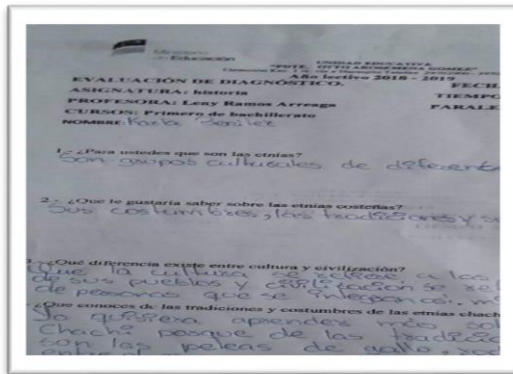 Ministerio
de Educación
UNIDAD EDUCATIVA
"PDTE. OTTO AROSEMENA GOMEZ"
Año lectivo 2018 - 2019
EVALUACIÓN DE DIAGNÓSTICO. FECH
ASIGNATURA: historia TIEMPO
PROFESORA: Leny Ramos Arreaga PARALE
CURSOS: Primero de bachillerato
NOMBRE: Karla
1.- ¿Para ustedes que son las etnias?
Son grupos culturales de diferent
2.- ¿Que le gustaría saber sobre las etnias costeñas?
Sus costumbres, las tradiciones y su
3.- ¿Qué diferencia existe entre cultura y civilización?
Que la cultura se refiere a las
de sus pueblos y civilización se ref
de personas que se integran así. m
¿Que conoces de las tradiciones y costumbres de las etnias chach
Yo quisiera aprender más sob
Chachi porque de las tradicio
son las peleas de gallo,